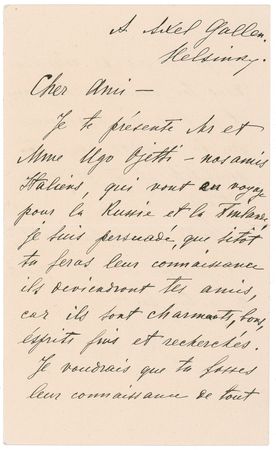 A Axel Gallen.
Helsinky.
Cher Ami —
Je te présente Mr et
Mme Ugo Ojetti – nos amis
Italiens, qui vont en voyage
pour la Russie et la Finlande
je suis persuadé, que sitôt
tu feras leur connaissance
ils deviendront tes amis,
car ils sont charmants, bons,
ésprits fins et recherchés.
Je voudrais que tu fasses
leur connaissance de tout